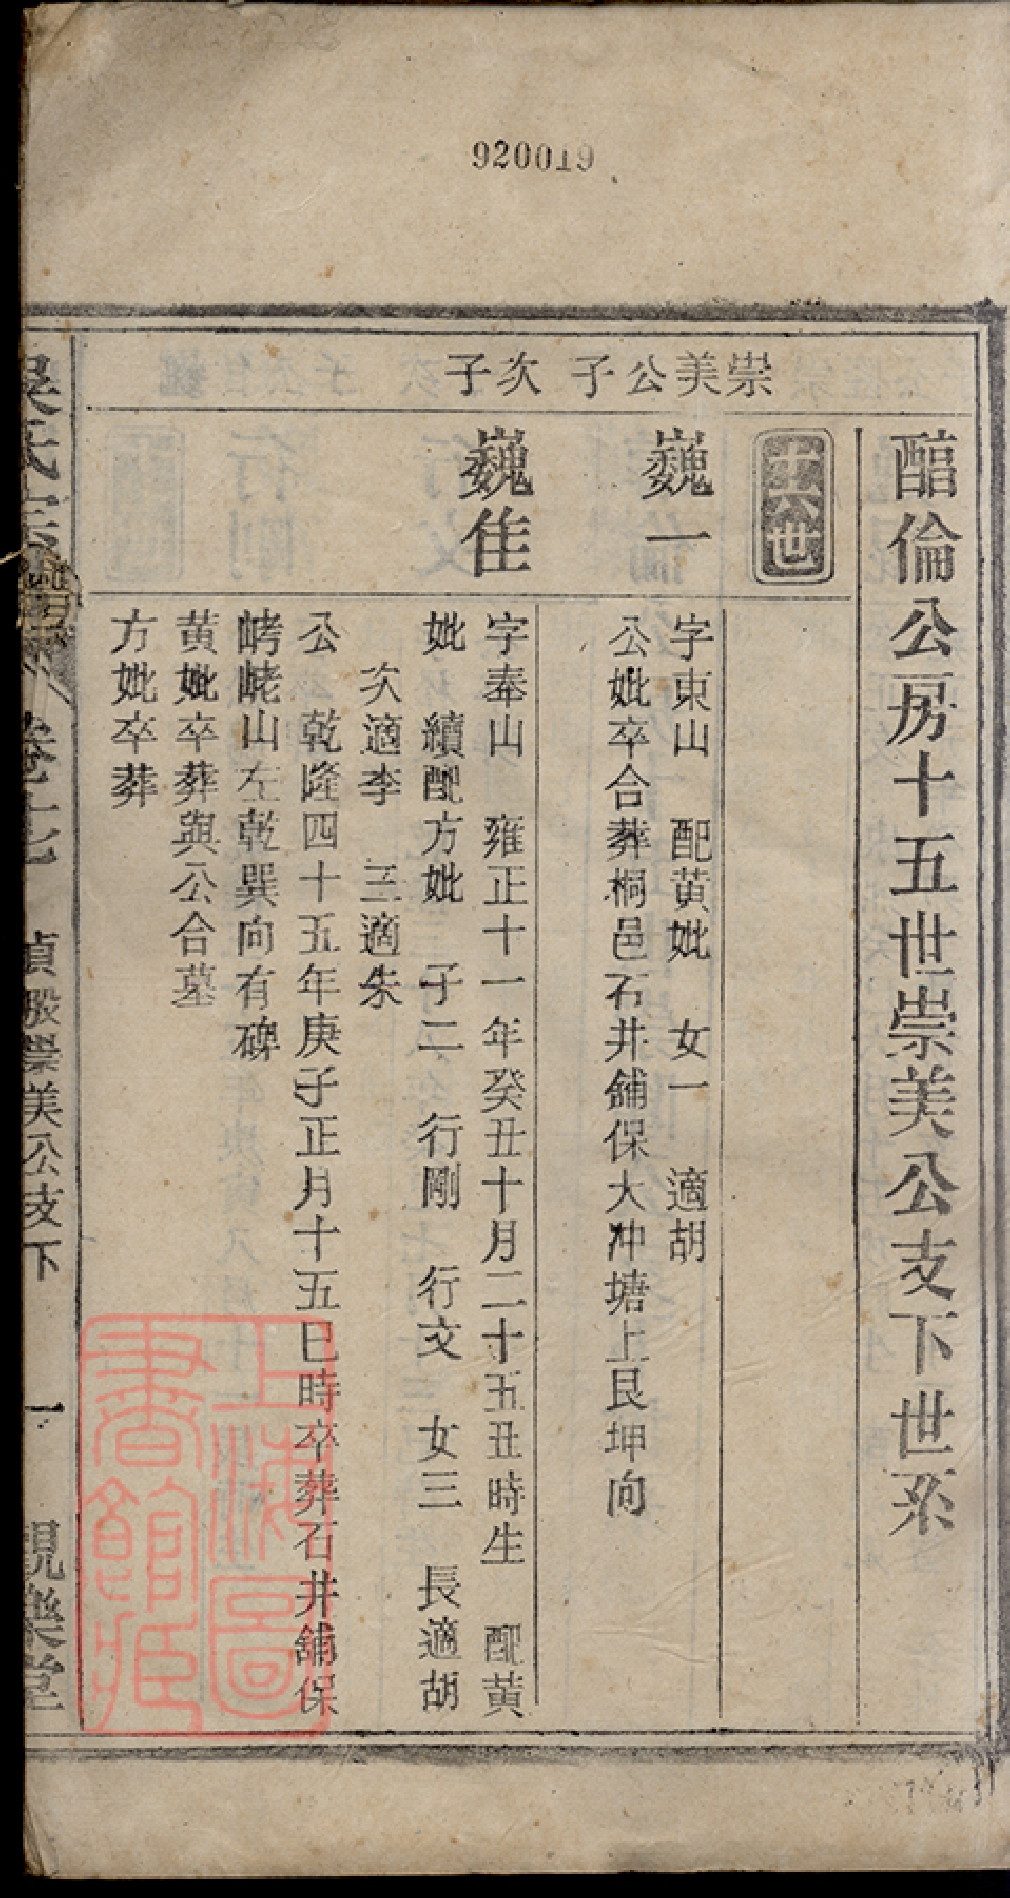 920019
醕倫公房十五世崇美公支下世系
十六世
崇美公子
巍一
字東山　配黄妣　女一　適胡
公妣卒合葬桐邑石井舖保大冲塘上艮坤向
次子
巍隹
字奉山　雍正十一年癸丑十月二十五丑時生　配黄
妣　續配方妣　子二　行剛　行文　女三　長適胡
次適李　三適朱
公　乾隆四十五年庚子正月十五巳時卒葬石井舖保
山左乾巽向有碑
黄妣卒葬與公合墓
方妣卒葬
吳氏宗譜　卷十七　貞股崇美公支下　一　親樂堂
上海圖書館藏